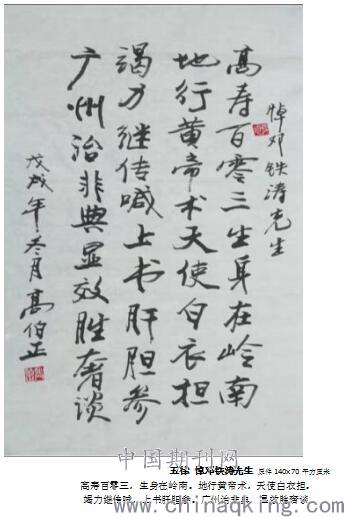 悼邓铁涛先生
高寿百零三生身在岭南
地行黄帝术天使白衣担
竭力继传喊上书肝胆参
广州治非典显效胜奢谈
戊戌年冬月高伯正
中国期刊网
五律 悼邓铁涛先生 原件 140x70 平方厘米
高寿百零三，生身在岭南。地行黄帝术，天使白衣担。
竭力继传喊，上书肝胆参。广州治非典，显效胜奢谈
www.chinaqking.com